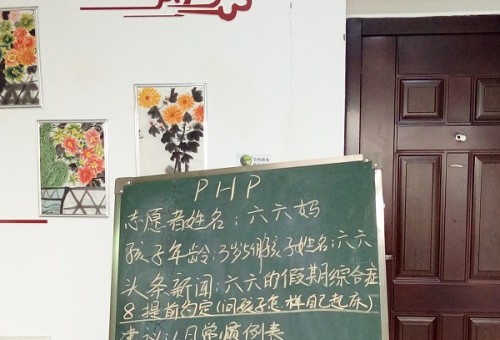 PHP
志愿者姓名:六六妈
孩子年龄:3岁5个月孩子姓名:六六
头条新闻:六六的假期综合症
8提前约定(问孩子怎样自己起床)
建议认日常惯例表